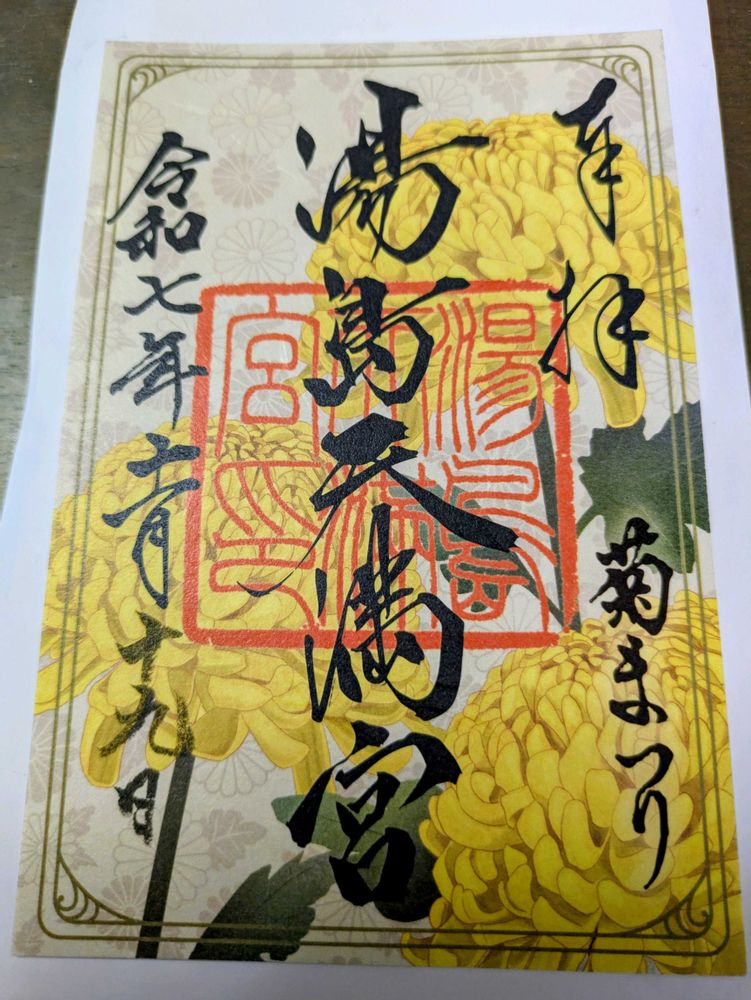 奉拝
菊まつり
湯島天満宮
湯島
天満
宮印
令和七年十一月十九日